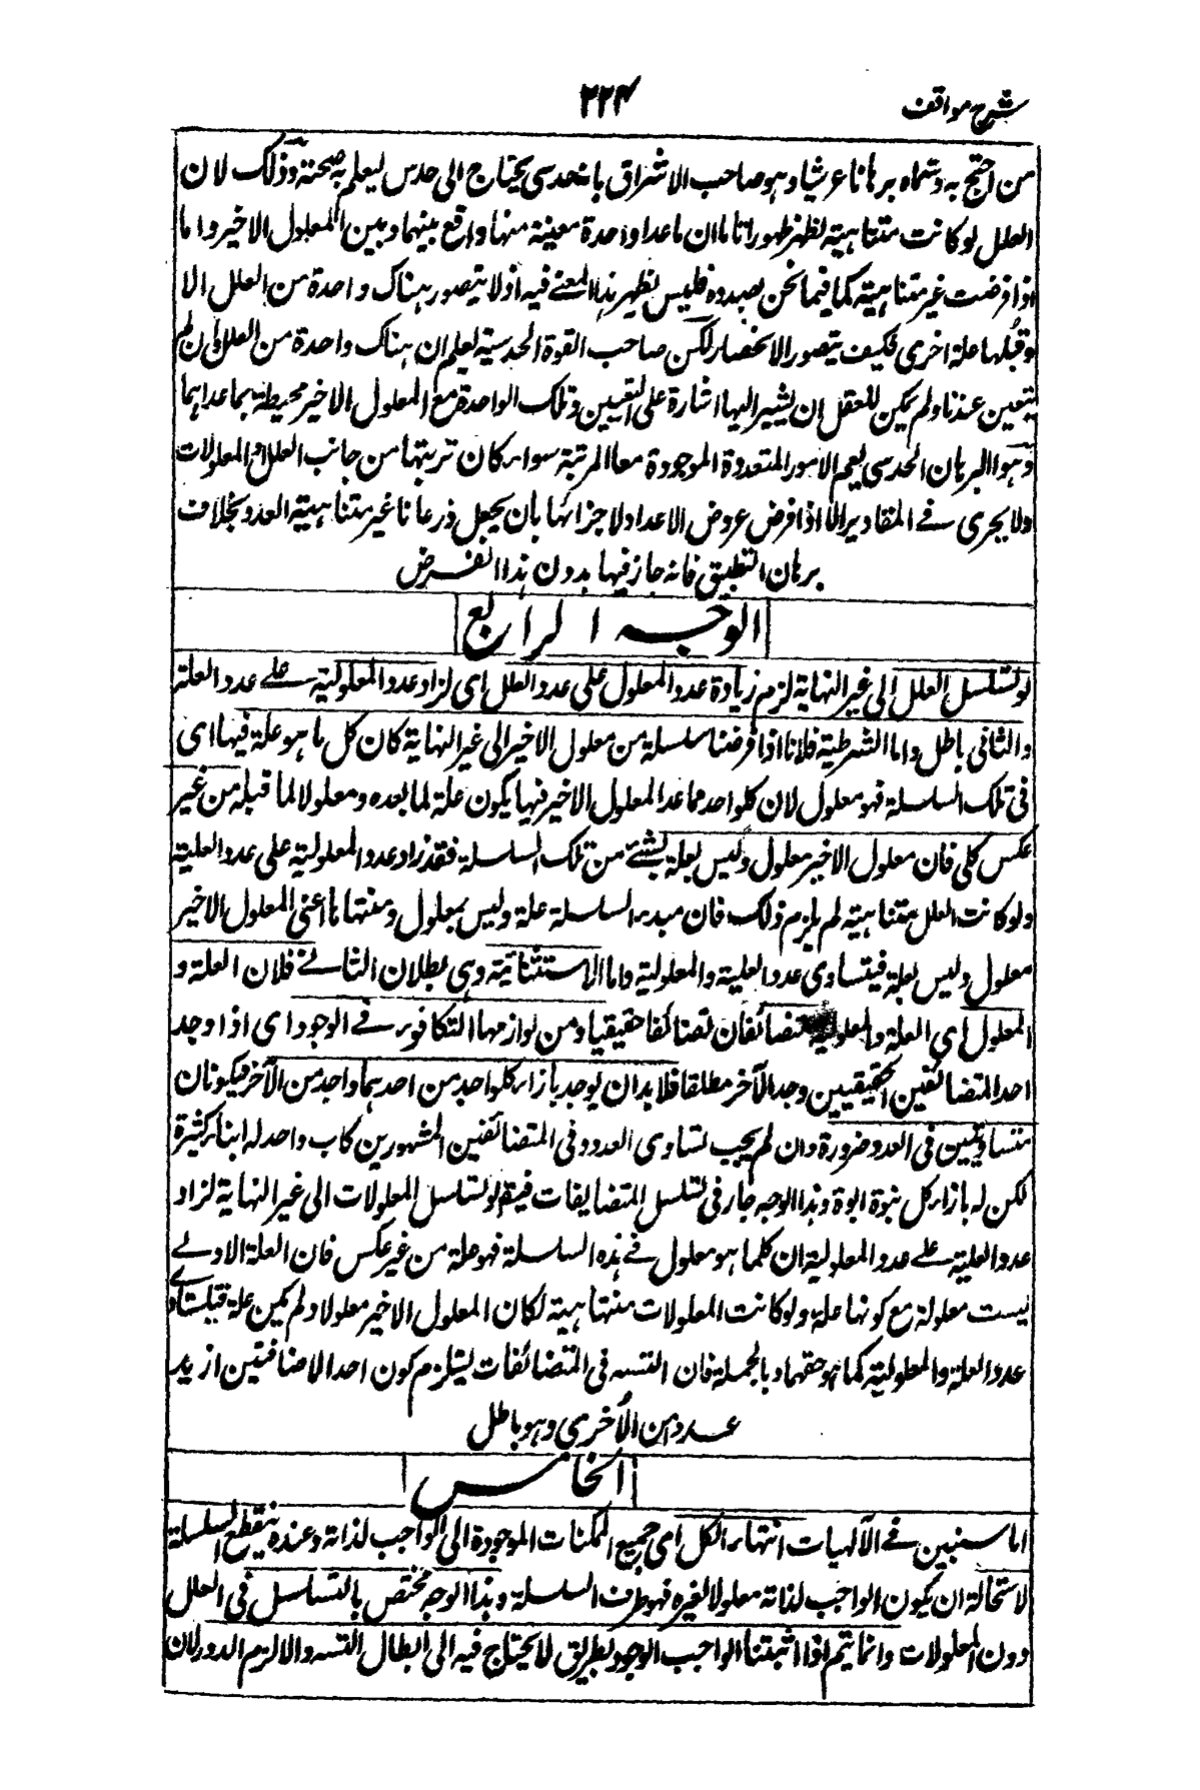 شرح مواقف
۲۲۴
من احتج به وسماه برهانا عرشيا وهو صاحب الاشراق بانه حدسى يحتاج الى حدس ليعلم به صحته وذلك لان
العلل لو كانت متناهية لظهر ظهورا تاما ان ما عدا واحدة معينة منها واقع بينهما وبين المعلول الاخير واما
اذا فرضت غير متناهية كما فيما نحن بصدده فليس يظهر هذا المعنى فيه اذ لا يتصور هناك واحدة من العلل الا
وقبلها علة اخرى فكيف يتصور الانحصار لكن صاحب القوة الحدسية يعلم ان هناك واحدة من العلل وان لم
يتعين عندنا ولم يمكن للعقل ان يشير اليها اشارة على التعيين وتلك الواحدة مع المعلول الاخير محيطة بما عداهما
وهو البرهان الحدسى يعم الامور المتعددة الموجودة معا المرتبة سواء كان ترتبها من جانب العلل او المعلولات
ولا يجرى فى المقادير الا اذا فرض عروض الاعداد لاجزائها بان يجعل ذرعانا غير متناهية العدد بخلاف
برهان التطبيق فانه جاز فيها بدون هذا الفرض
الوجه الرابع
لو تسلسل العلل الى غير النهاية لزم زيادة عدد المعلول على عدد العلل اى لزاد عدد المعلولية على عدد العلة
والثانى باطل واما الشرطية فلانا اذا فرضنا سلسلة من معلول الاخير الى غير النهاية كان كل ما هو علة فيها اى
فى تلك السلسلة فهو معلول لان كل واحد مما عدا المعلول الاخير فيها يكون علة لما بعده ومعلولا لما قبله من غير
عكس كلى فان معلول الاخير معلول وليس بعلة لشئ من تلك السلسلة فقد زاد عدد المعلولية على عدد العلية
ولو كانت العلل متناهية لم يلزم ذلك فان مبدء السلسلة علة وليس بمعلول ومنتهاها اعنى المعلول الاخير
معلول وليس بعلة فيتساوى عدد العلية والمعلولية واما الاستثنائية وهى بطلان التالى فلان العلة و
المعلول اى العلة والمعلولية متضائفان تضائفا حقيقيا ومن لوازمهما التكافوء فى الوجود اى اذا وجد
احد المتضائفين الحقيقيين وجد الآخر مطلقا فلا بد ان يوجد بازاء كل واحد من احدهما واحد من الآخر فيكونان
متساويين فى العدد ضرورة وان لم يجب تساوى العدد فى المتضائفين المشهورين كاب واحد له ابناء كثيرة
لكن له بازاء كل بنوة ابوة وهذا الوجه جار فى تسلسل المتضايفات فيقم لو تسلسل المعلولات الى غير النهاية لزاد
عدد العلية على عدد المعلولية ان كلما هو معلول فى هذه السلسلة فهو علة من غير عكس فان العلة الاولى
ليست معلولة مع كونها علة ولو كانت المعلولات متناهية لكان المعلول الاخير معلولا ولم يكن علة فيتساوى
عدد العلة والمعلولية كما هو حقهما وبالجملة فان التسه فى المتضائفات يستلزم كون احد الاضافتين ازيد
عددا من الاخرى وهو باطل
الخامس
انا سنبين فى الآلهيات انتهاء الكل اى جميع الممكنات الموجودة الى الواجب لذاته وعنده ينقطع السلسلة
لاستحالة ان يكون الواجب لذاته معلولا لغيره فهو طرف السلسلة وهذا الوجه مختص بالتسلسل فى العلل
دون المعلولات وانما يتم اذا اثبتنا الواجب الوجود بطريق لا يحتاج فيه الى ابطال التسه والا لزم الدور لان